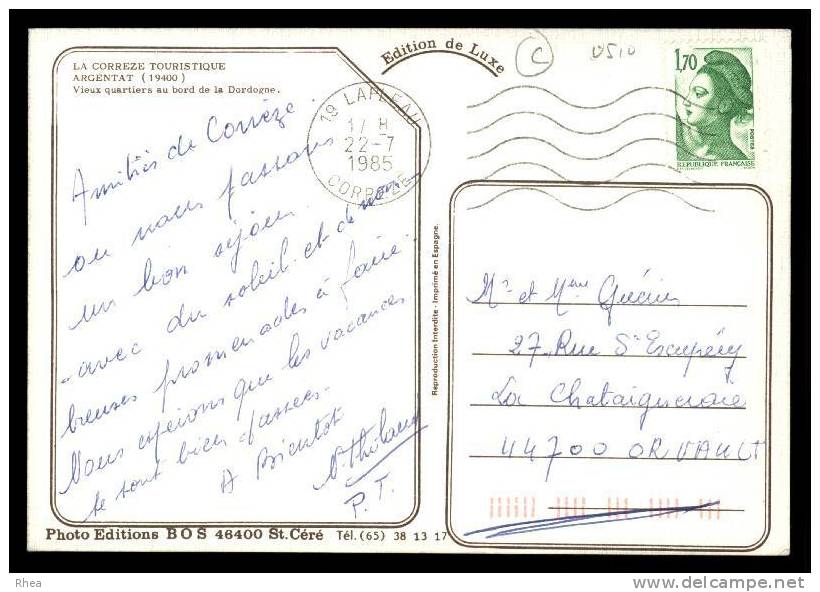 LA CORREZE TOURISTIQUE
ARGENTAT (19400)
Vieux quartiers au bord de la Dordogne.
Edition de Luxe
C
1,70
POSTES
REPUBLIQUE FRANÇAISE
19 LAPLEAU
17 H
22-7
1985
CORREZE
Amitiés de Corrèze
ou nous passons
un bon séjour
avec du soleil et de nom-
breuses promenades à faire.
Nous espérons que les vacances
se sont bien passées.
A Bientôt
P. T.
Reproduction Interdite - Imprimé en Espagne.
Mr et Mme
27, Rue St Exupéry
La Chataigneraie
44700 ORVAULT
Photo Editions BOS 46400 St. Céré Tél. (65) 38 13 17
Rhea
delcampe.net